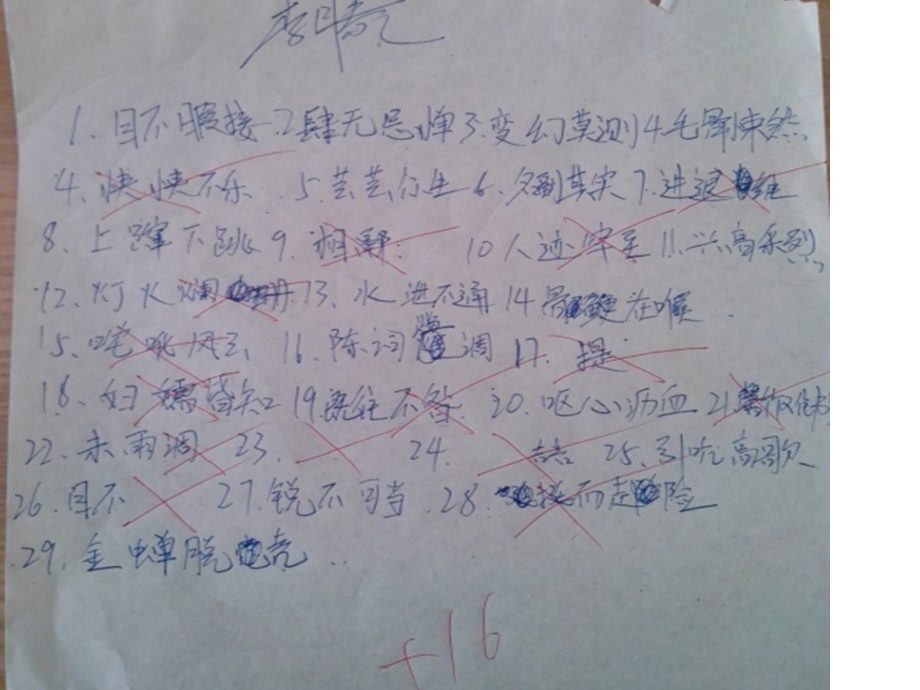 1. 目不暇接 2 肆无忌惮 3. 变幻莫测 4. 毛骨悚然
4. 快快不乐 5. 芸芸众生 6. 名副其实 7. 进退维
8. 上蹿下跳 9. 10 人迹罕至 11. 兴高采烈
12. 灯火阑珊 13. 水泄不通 14 骨鲠在喉
15. 咤 16. 陈词滥调 17. 提
18. 妇孺皆知 19. 既往不咎 20. 呕心沥血 21
22. 未雨调 23. 24. 25. 引吭高歌
26. 目不 27. 锐不可当 28 而走险
29. 金蝉脱壳
+16